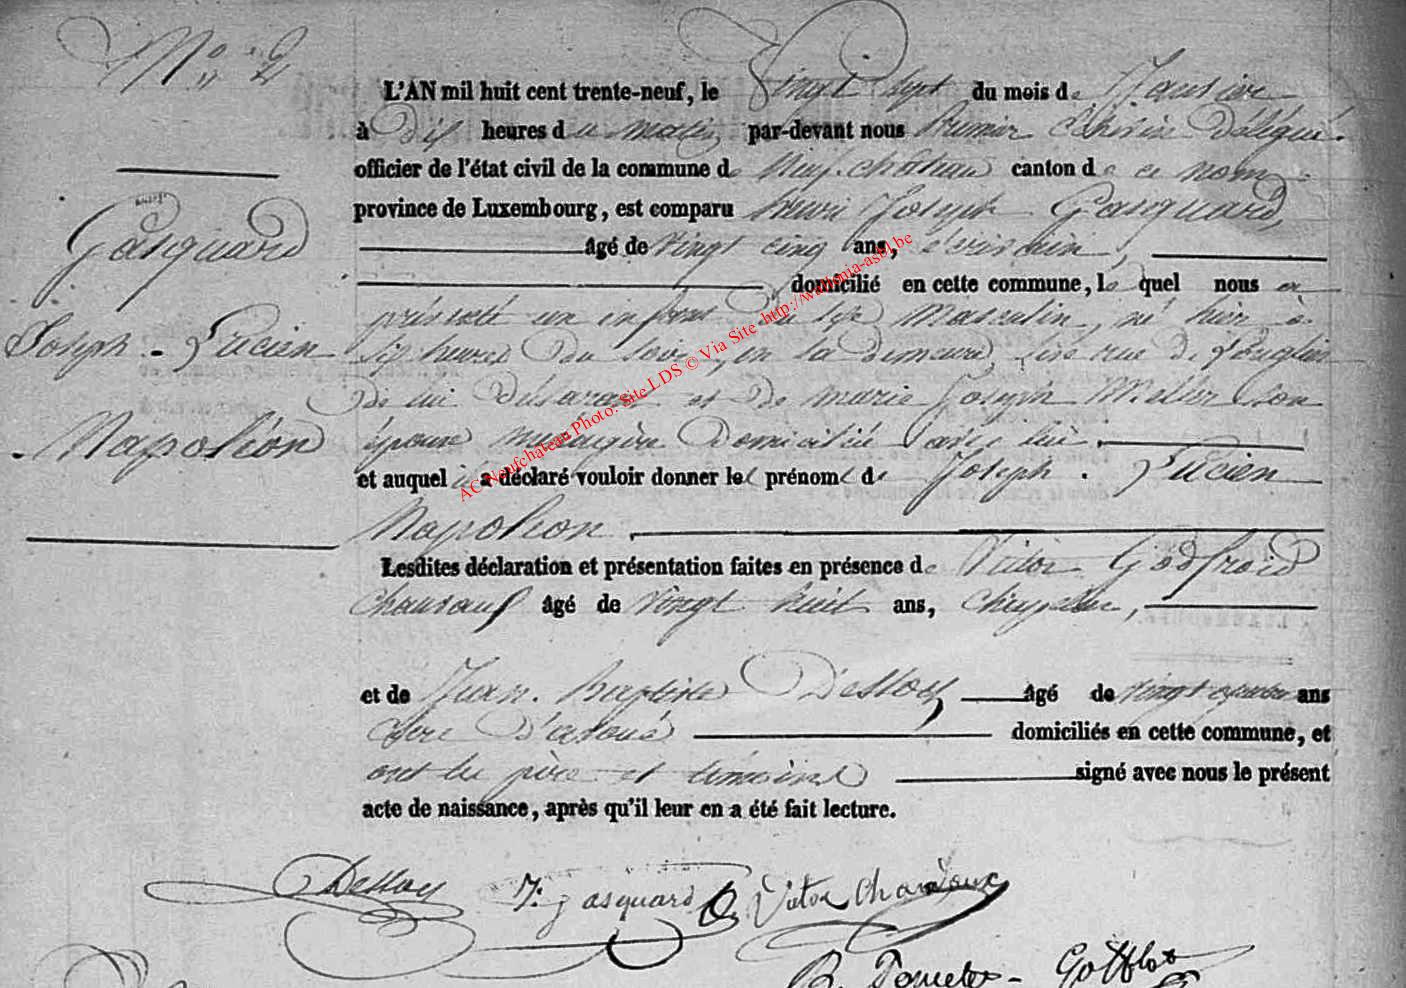 N° 2
Gasquard
Joseph - Lucien
Napoléon
L'AN mil huit cent trente-neuf, le Vingt Sept du mois de Janvier
à Dix heures du matin par-devant nous Premier Echevin Délégué
officier de l'état civil de la commune de Neufchateau canton de ce nom
province de Luxembourg, est comparu Henri Joseph Gasquard,
âgé de Vingt cinq ans, Ecrivain,
domicilié en cette commune, lequel nous a
présenté un enfant du sexe Masculin, né hier à
Six heures du soir, en la demeure, sise rue de
de lui déclarant et de marie Joseph Mellier Son
épouse ménagère domiciliée avec lui
et auquel il a déclaré vouloir donner les prénoms de Joseph. Lucien
Napoléon,
Lesdites déclaration et présentation faites en présence de Victor Godfroid
âgé de Vingt huit ans,
et de Jean-Baptiste Dessoy âgé de Vingt quatre ans
Clerc d'avoué domiciliés en cette commune, et
ont les père et témoins signé avec nous le présent
acte de naissance, après qu'il leur en a été fait lecture.
Dessoy J: gasquard Victor
AC Neufchateau Photo: Site LDS © Via Site http://wallonia-asbl.be